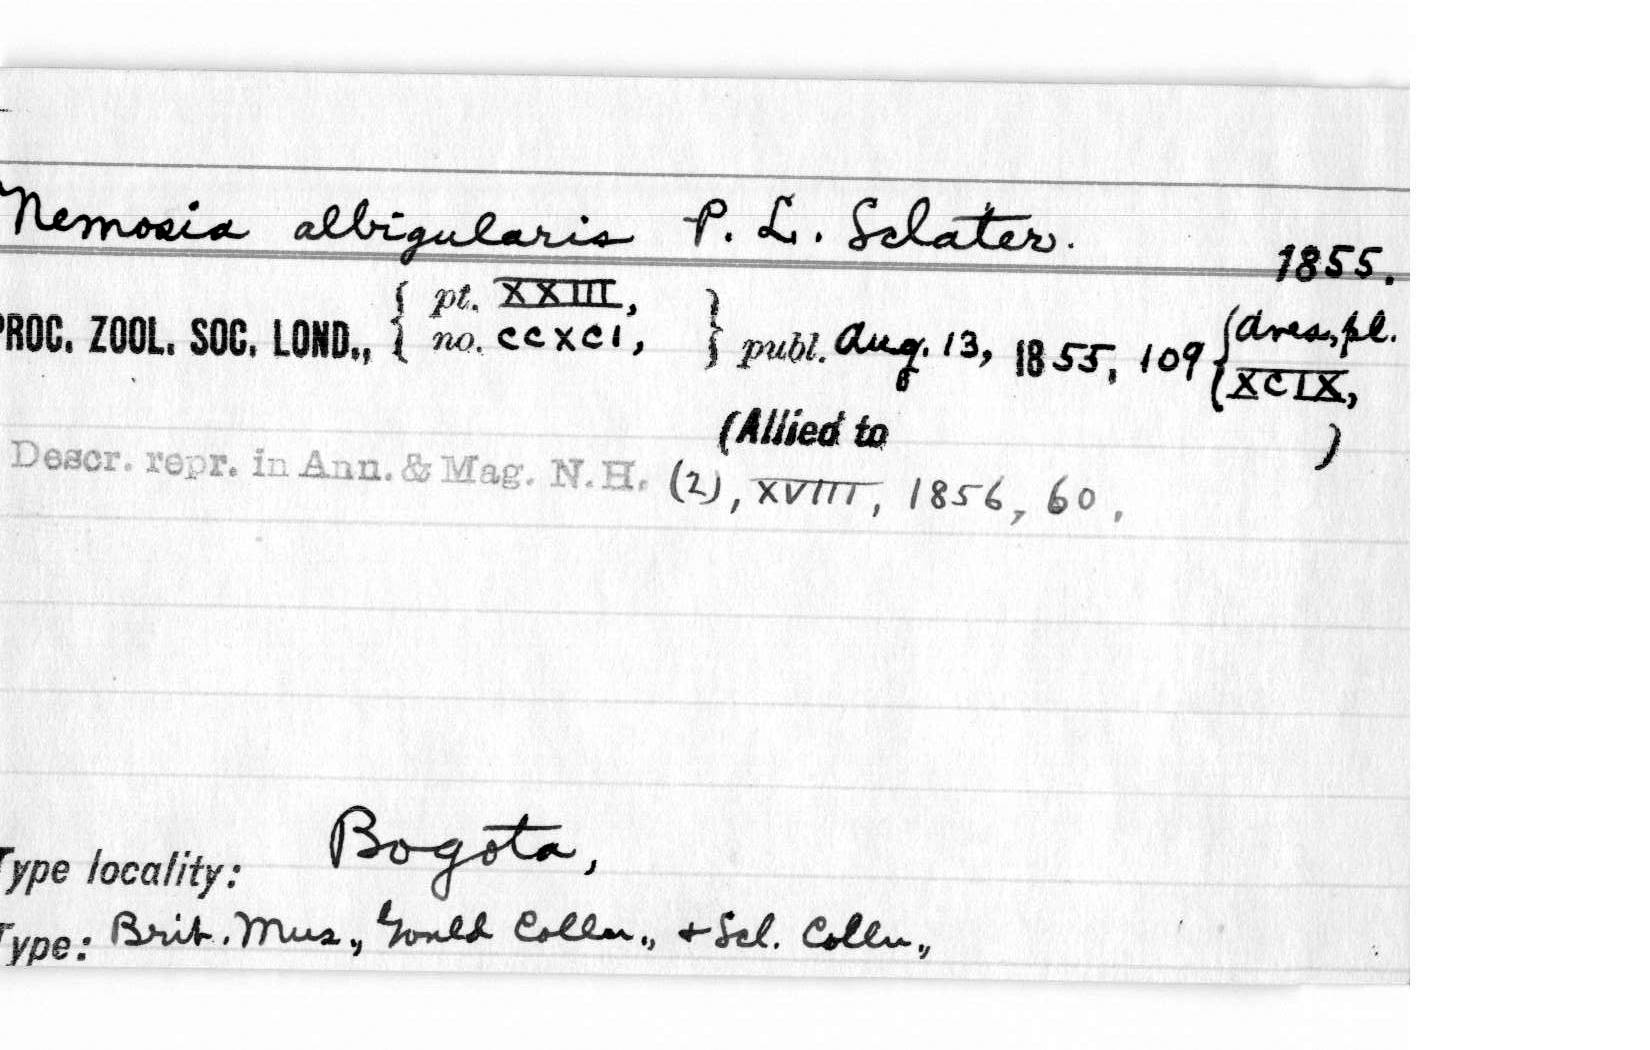 Nemosia albigularis P. L. Sclater. 1855.
PROC. ZOOL. SOC. LOND., { pt. XXIII, no. CCXCI, } publ. Aug. 13, 1855, 109 { Aves, pl. XCIX,
(Allied to )
Descr. repr. in Ann. & Mag. N.H. (2), XVIII, 1856, 60.
Type locality: Bogota,
Type: Brit. Mus., Gould Colln., + Scl. Colln.,